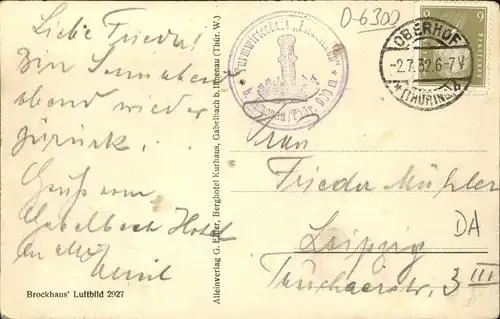 Liebe Frieda!
Bin Sonnabend
abend wieder
zurück.
Gruß vom
Gabelbach Hotel
an alle
Brockhaus' Luftbild 2927
Alleinverlag G. Eifler, Berghotel Kurhaus, Gabelbach b. Ilmenau (Thür. W.)
Turmwirtschaft
O-6300
9
OBERHOF
-2.7.32.6-7V
(THÜRING.)
b
Frau
Frieda Mühler
DA
Leipzig
3 III